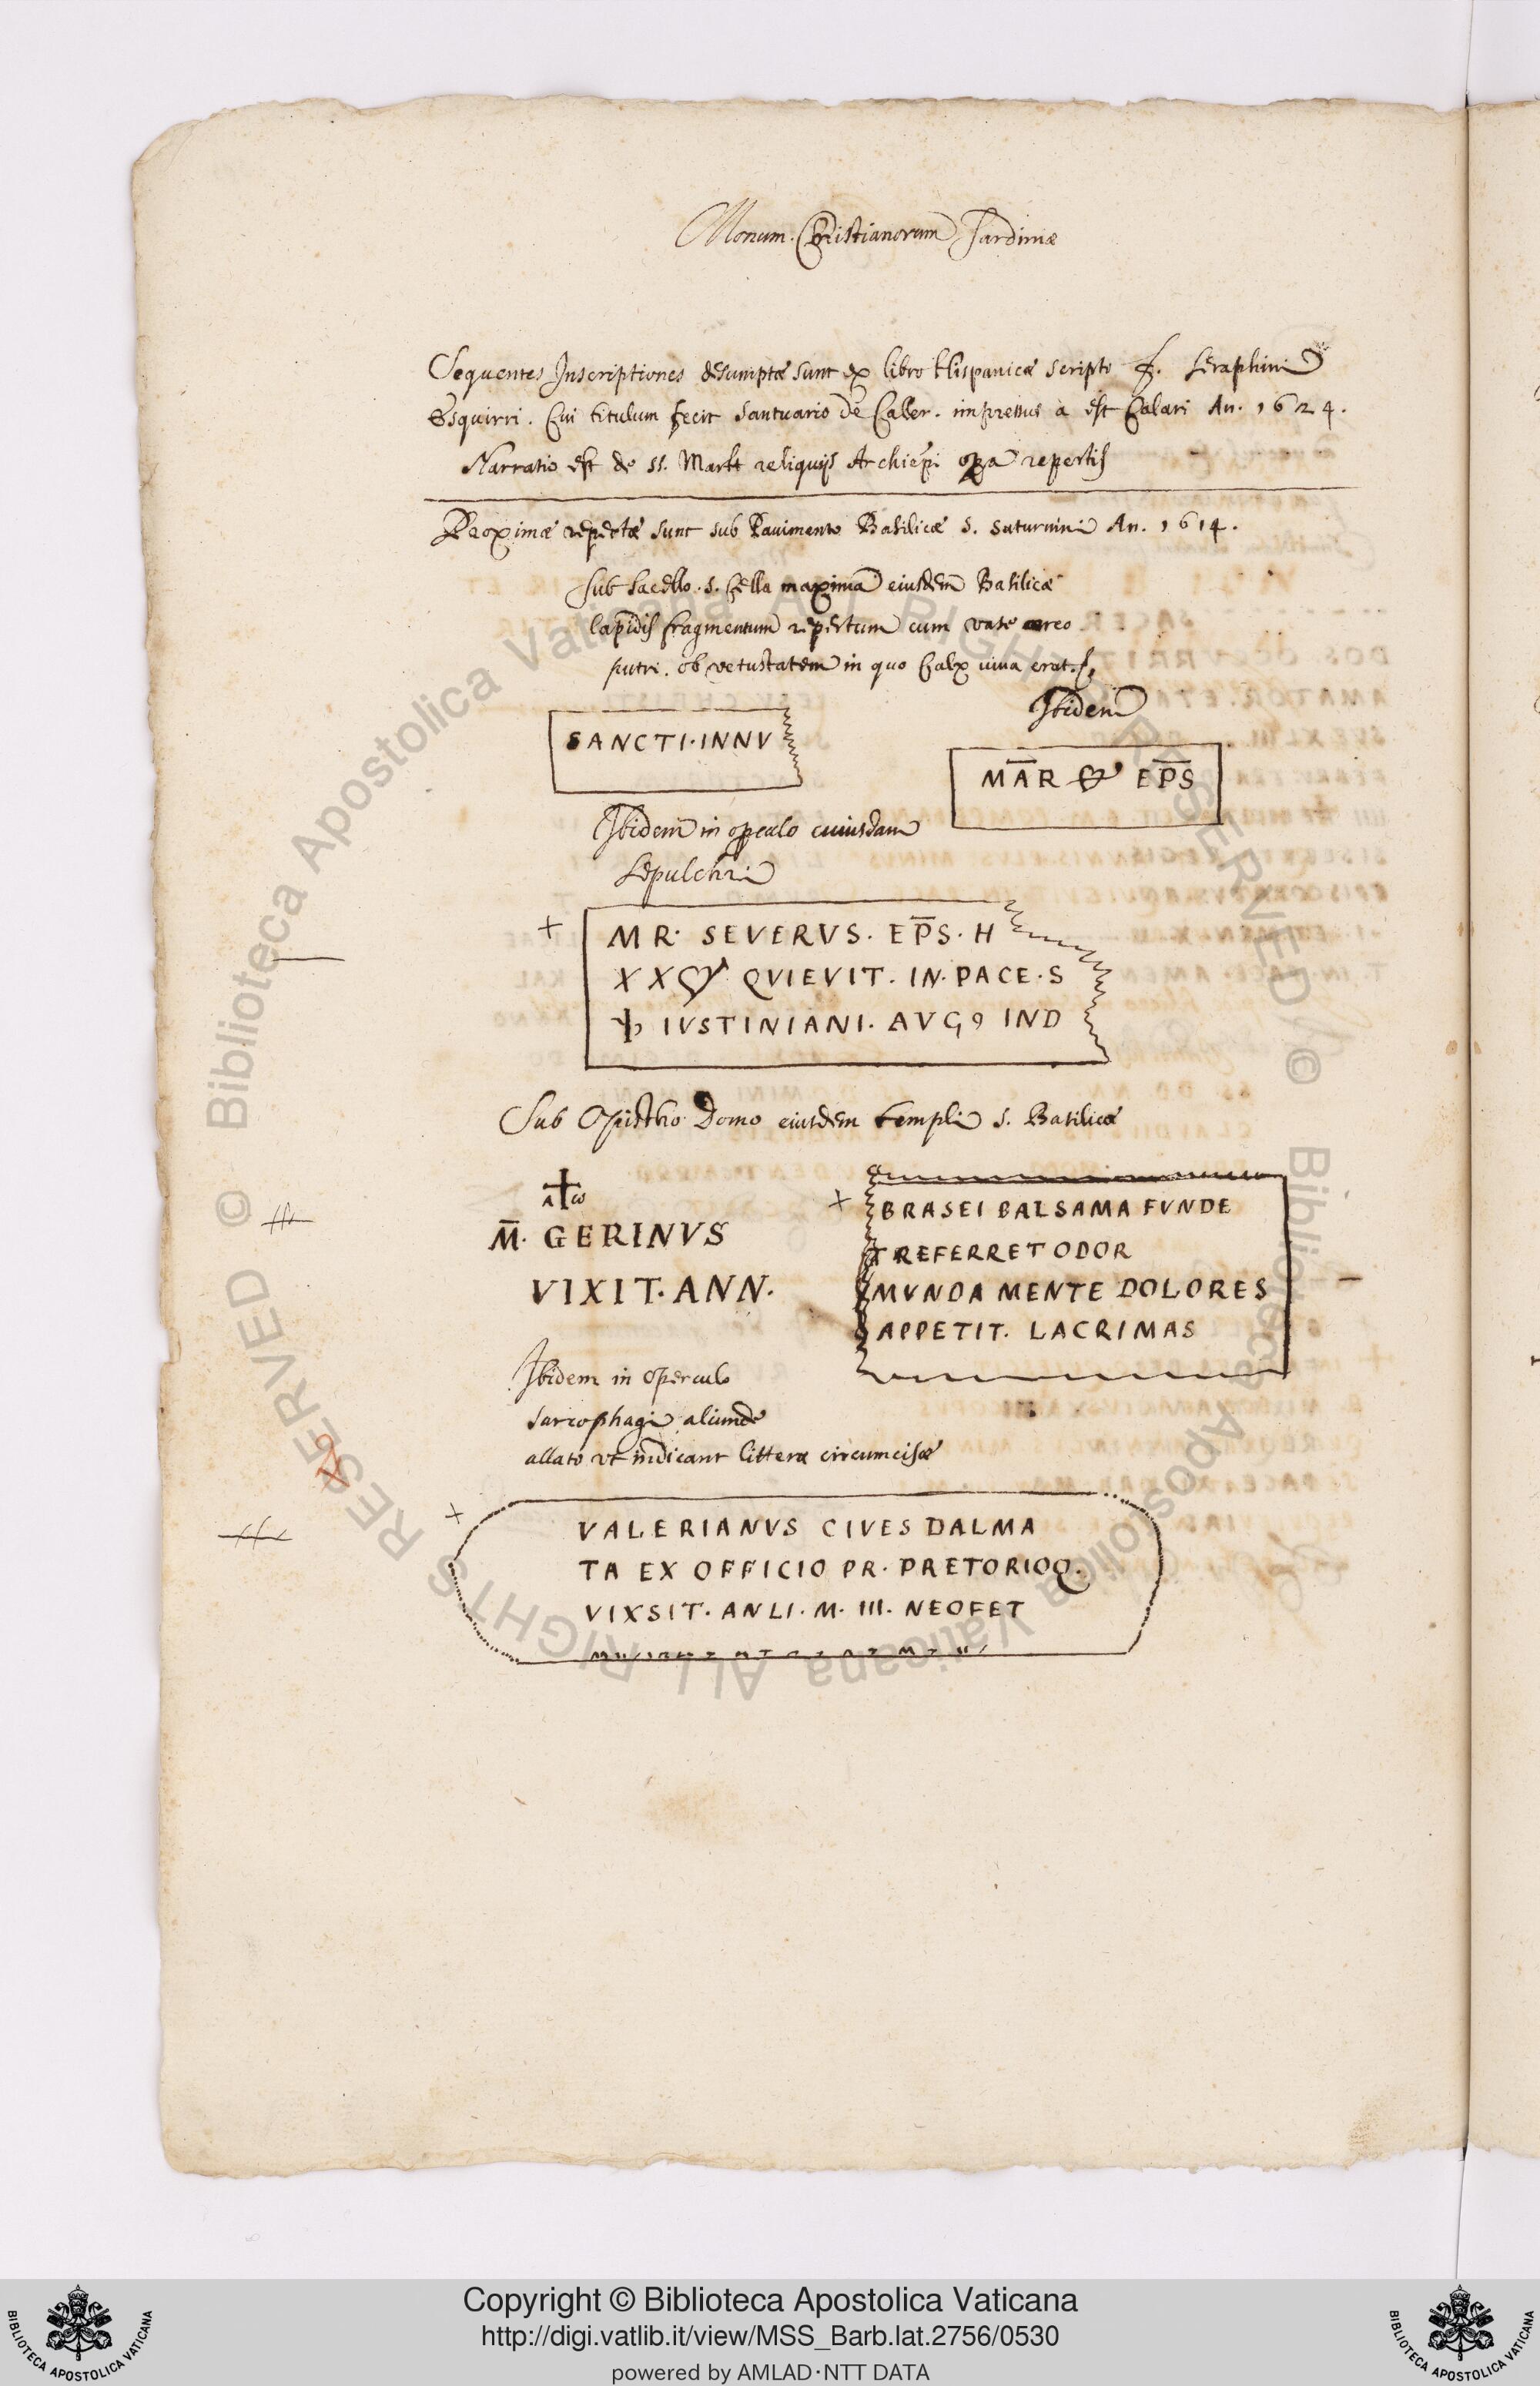 Monum. Christianorum Sardiniæ
Sequentes Inscriptiones desumptæ sunt ex libro Hispanicæ scripto f. Seraphini
Esquirri. Cui titulum fecit Santuario de Caller. impressus a est Calari An. 1624.
Narratio est de SS. Mart reliquijs Archiepi opa repertis
Proximæ repertæ sunt sub Pauimento Basilicæ S. Saturnini An. 1614.
Sub Sacello. S. Cella maxima eiusdem Basilicæ
lapidis fragmentum repertum cum vase æreo
putri. ob vetustatem in quo Calx uiua erat.
Ibidem
SANCTI·INNV
MAR EPS
Ibidem in opculo cuiusdam
Sepulchri
MR· SEVERVS. EPS. H
XX QVIEVIT. IN. PACE. S
IVSTINIANI. AVG9 IND
Sub Opistho Domo eiusdem templi S. Basilicæ
A ω
M. GERINVS
VIXIT. ANN.
BRASEI BALSAMA FVNDE
T REFERRET ODOR
MVNDA MENTE DOLORES
APPETIT. LACRIMAS
Ibidem in operculo
sarcophagi aliunde
allato vt indicant litteræ circumcisæ
VALERIANVS CIVES DALMA
TA EX OFFICIO PR. PRETORIOQ.
VIXSIT. ANLI. M. III. NEOFET
Copyright © Biblioteca Apostolica Vaticana
http://digi.vatlib.it/view/MSS_Barb.lat.2756/0530
powered by AMLAD·NTT DATA
BIBLIOTECA APOSTOLICA VATICANA
BIBLIOTECA APOSTOLICA VATICANA
© Biblioteca Apostolica Vaticana ALL RIGHTS RESERVED © Biblioteca Apostolica Vaticana ALL RIGHTS RESERVED